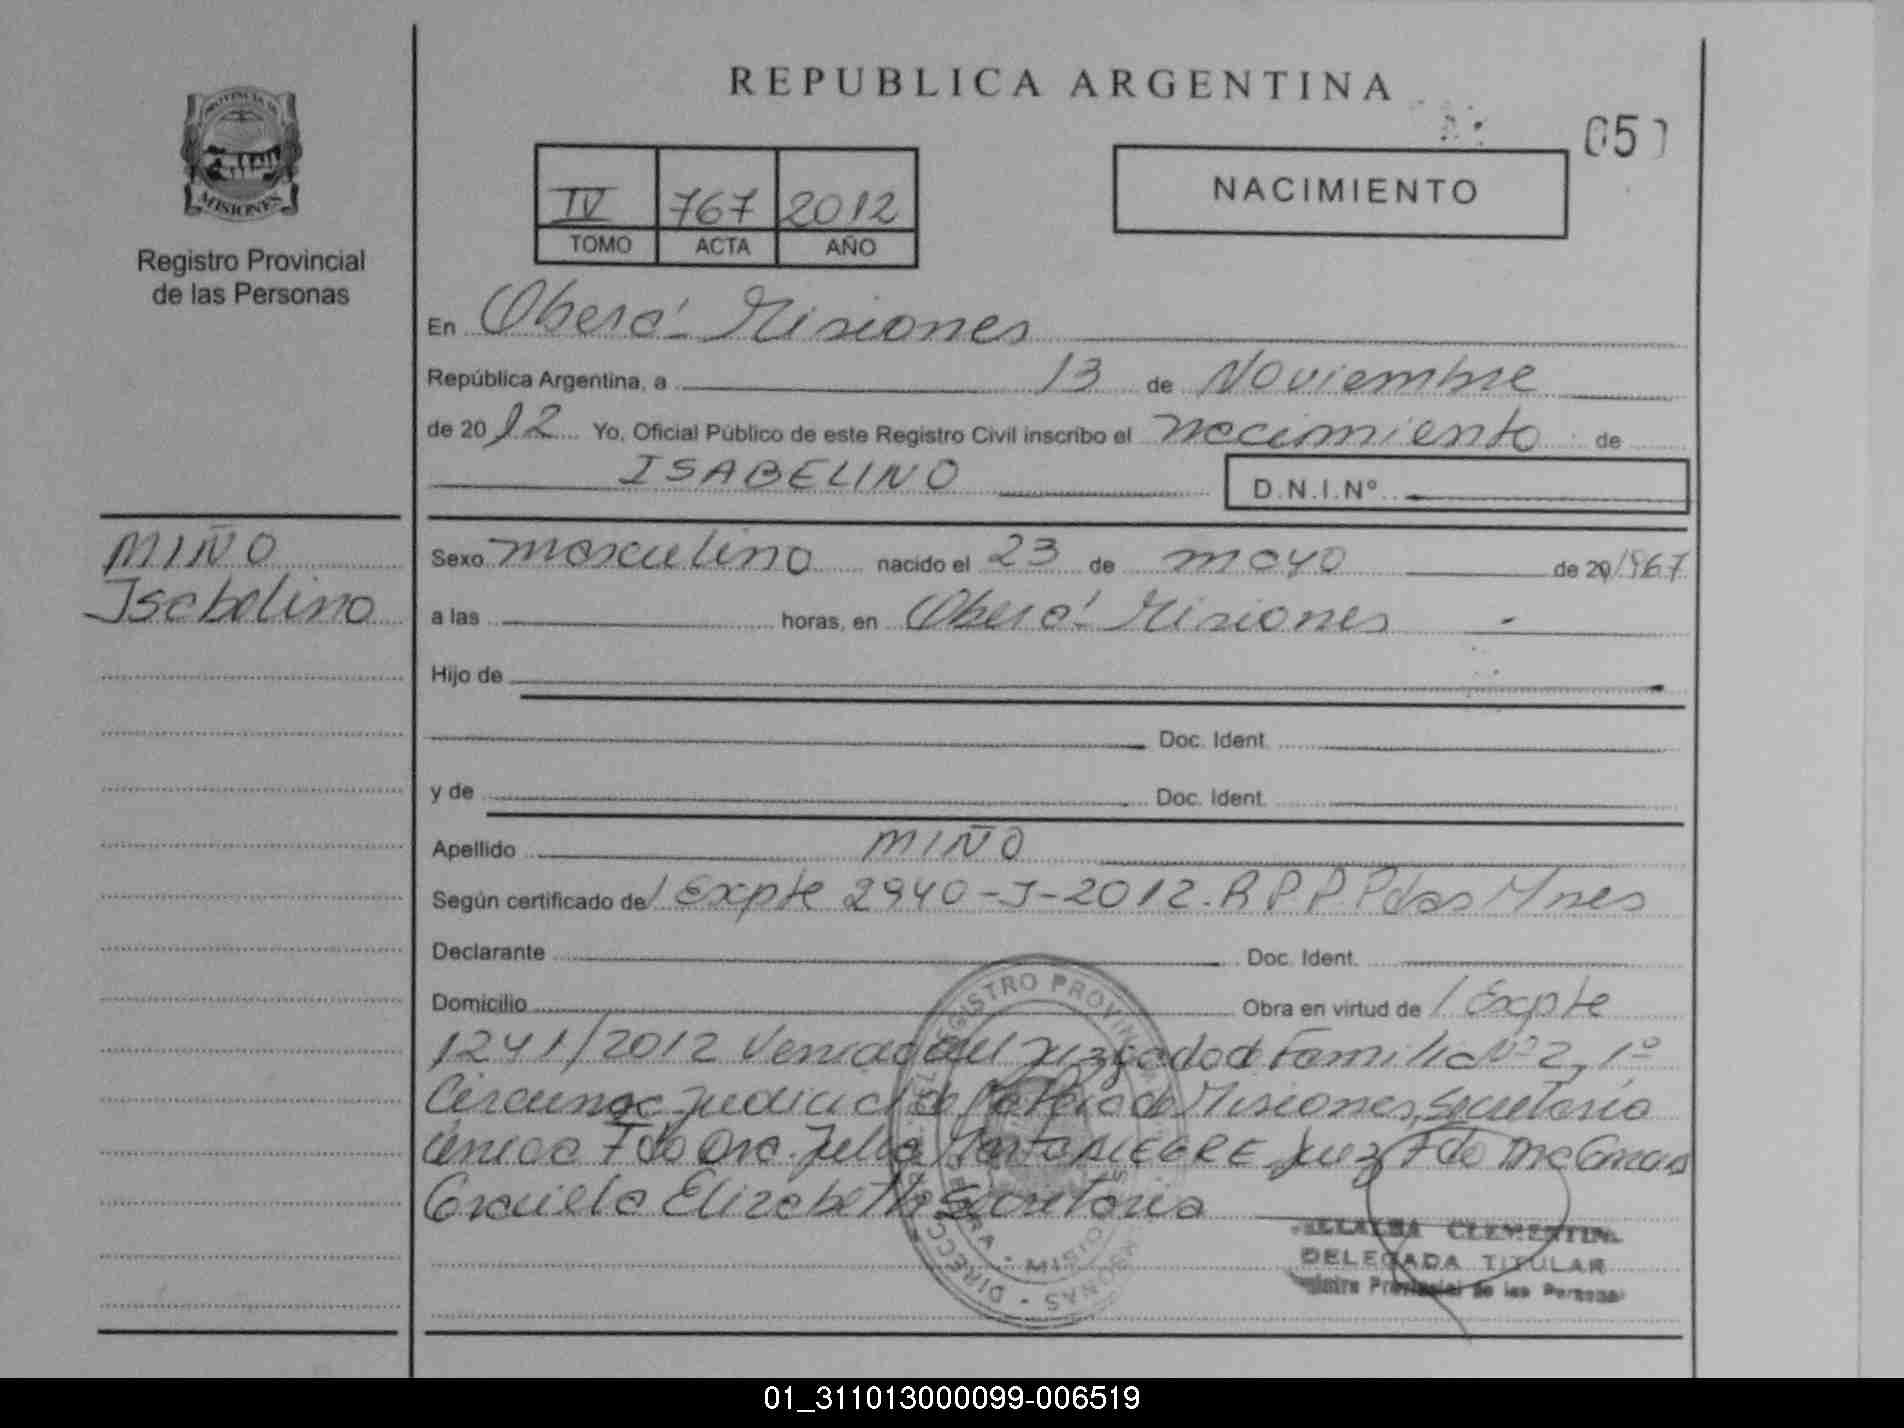 REPUBLICA ARGENTINA
05
PROVINCIA DE
MISIONES
Registro Provincial
de las Personas
IV 767 2012
TOMO ACTA AÑO
NACIMIENTO
En Oberá - Misiones
República Argentina, a 13 de Noviembre
de 2012 Yo, Oficial Público de este Registro Civil inscribo el nacimiento de
ISABELINO D.N.I.Nº
MIÑO
Isabelino
Sexo masculino nacido el 23 de mayo de 20/1967
a las horas, en Oberá - Misiones
Hijo de
Doc. Ident.
y de Doc. Ident.
Apellido MIÑO
Según certificado de/ Expte 2940-J-2012. R P P P das Mnes
Declarante Doc. Ident.
Domicilio Obra en virtud de / Expte
1241/2012 Venida del Juzgado de Familia Nº 2, 1º
Circunsc. Judicial de Misiones, Secretaria
única Fdo Dra. ALEGRE Juez Fdo Dra
Graciela Elizabeth Secretaria
CLEMENTINA
DELEGADA TITULAR
Provincial de las Personas
REGISTRO PROVINCIAL
DIRECCION
MISIONES
01_311013000099-006519